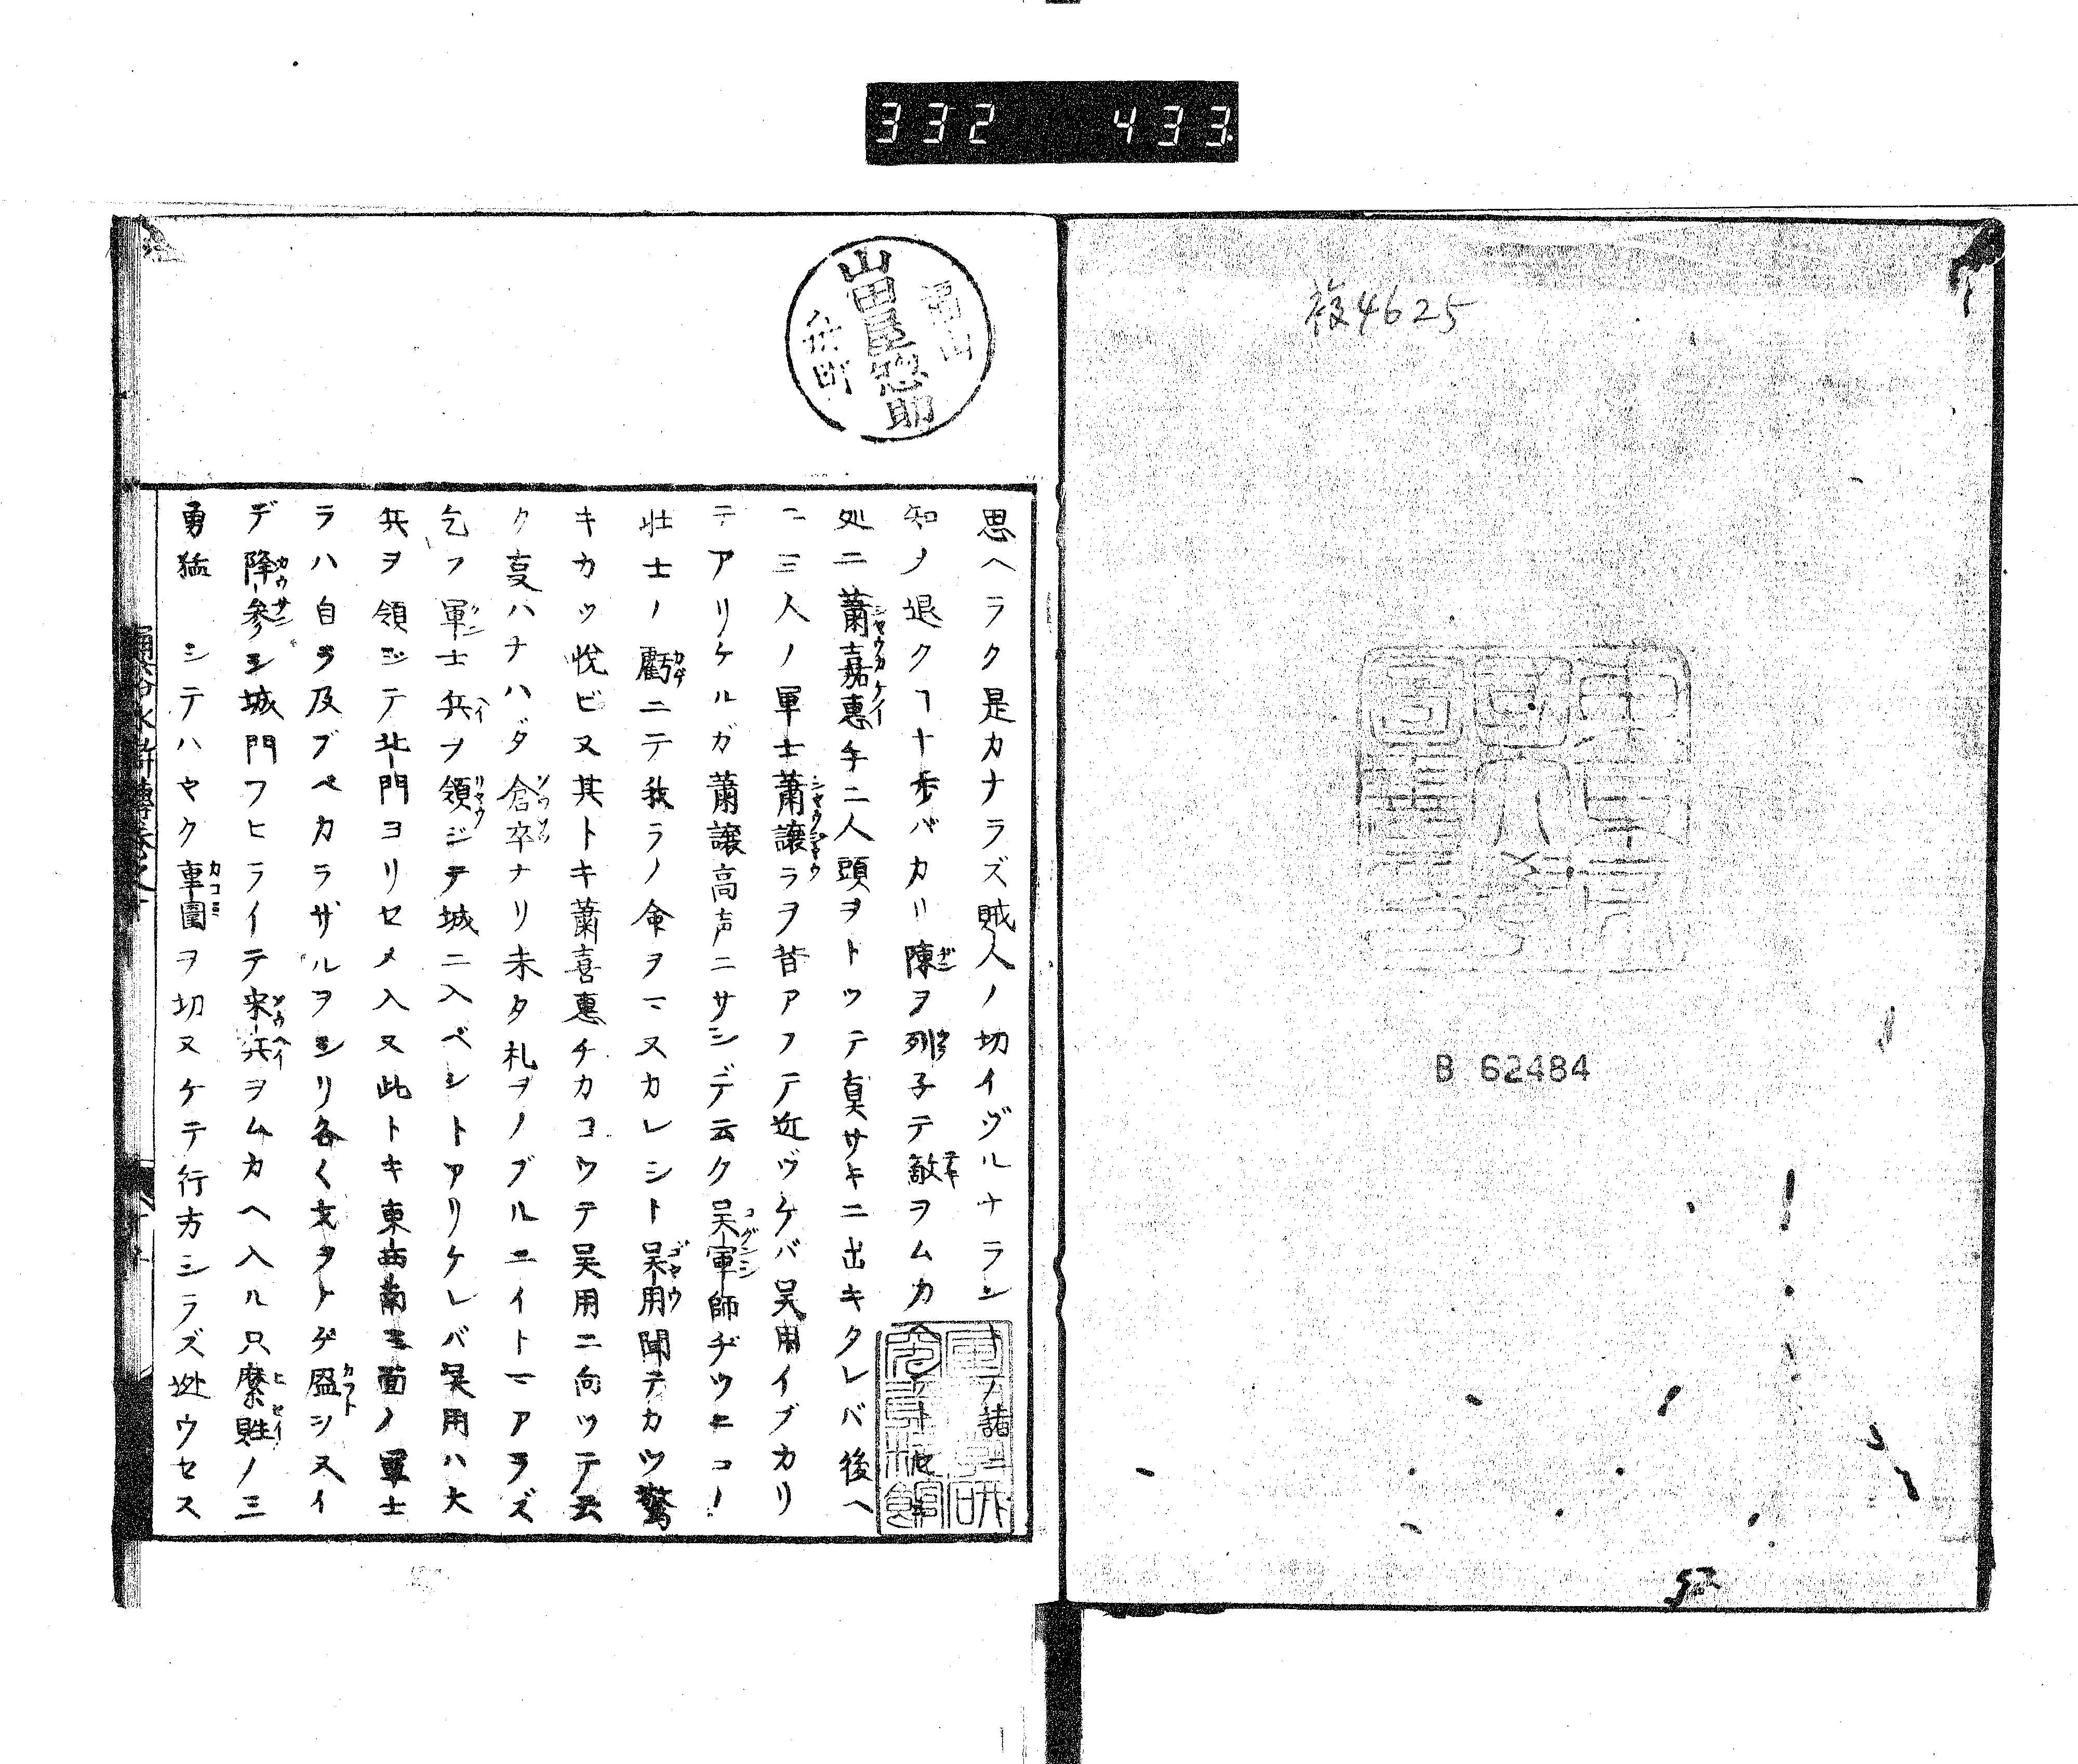 332 433
複4625
B 62484
山田屋惣助
思ヘラク是カナラズ賊人ノ切イヅルナラントテ諸
知ノ退クヿ十歩バカリ陳ヲ列子テ敵ヲムカヘ
処ニ蕭嘉恵手ニ人頭ヲトツテ真サキニ出キタレバ後ヘ
ニ三人ノ軍士蕭譲ラヲ昔アフテ近ヅケバ呉用イブカリ
テアリケルガ蕭譲高声ニサシデ云ク呉軍師ヂツニコノ
壮士ノ虧ニテ我ラノ命ヲマヌカレシト呉用聞テカツ驚
キカツ悦ビ又其トキ蕭喜恵チカコウテ呉用ニ向ツテ云
ク叓ハナハダ倉卒ナリ未タ礼ヲノブルニイトマアラズ
乞フ軍士兵ヲ領ジテ城ニ入ベシトアリケレバ呉用ハ大
兵ヲ領ジテ北門ヨリセメ入又此トキ東西南三面ノ軍士
ラハ自ラ及ブベカラザルヲシリ各〱戈ヲトゲ盔シヌイ
デ降参シ城門ヲヒライテ宋兵ヲムカヘ入ル只縻貹ノ三
勇猛シテハヤク重圍ヲ切ヌケテ行方シラズ迯ウセス
通俗水滸傳巻之